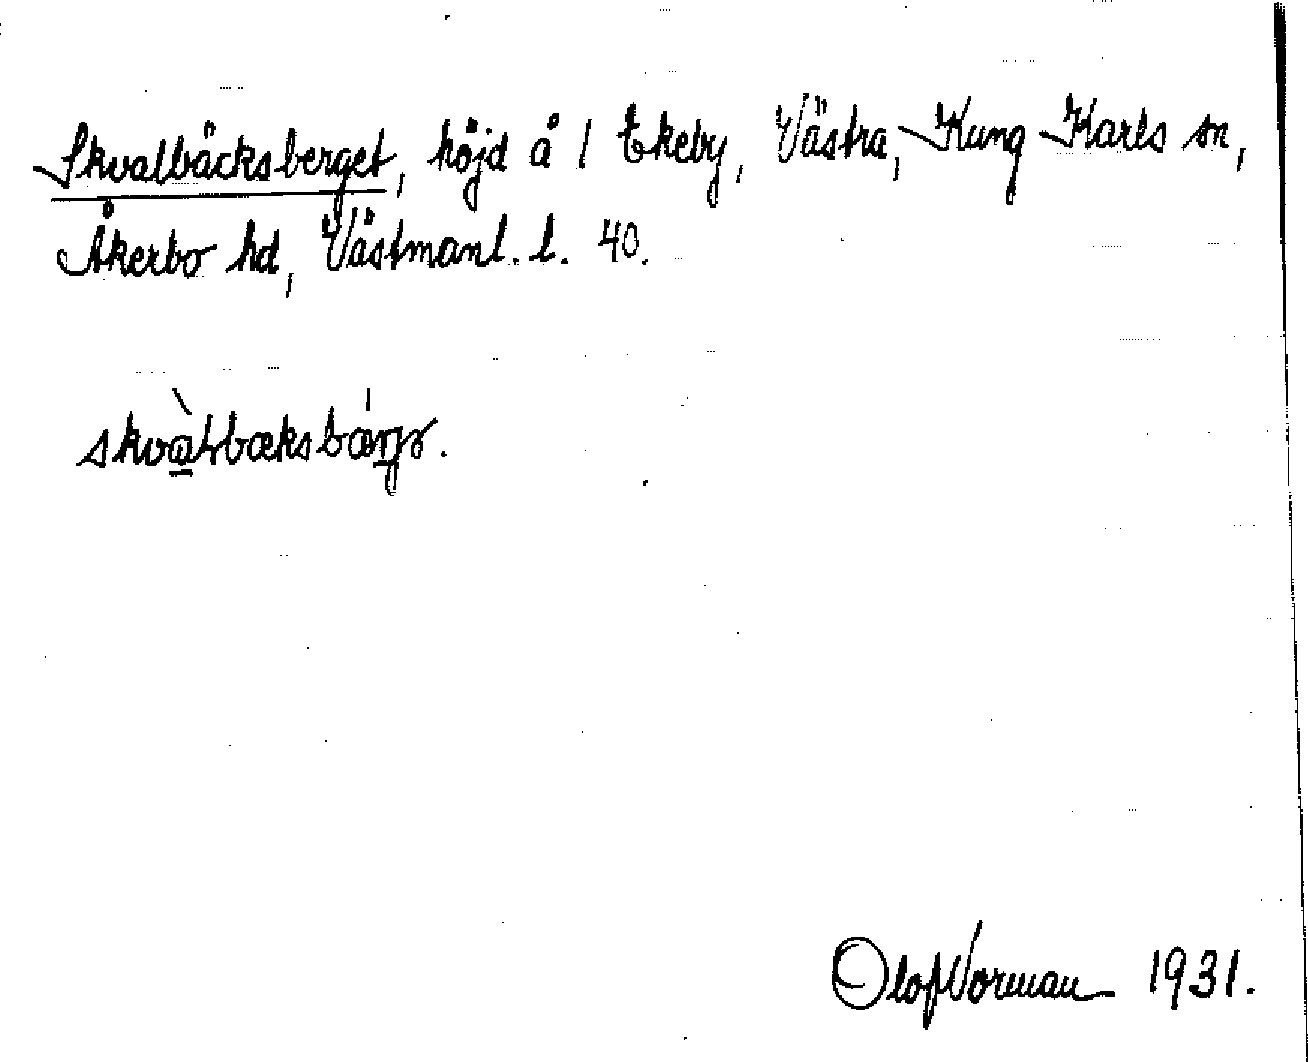 Skvalbäcksberget, höjd å 1 Ekeby, Västra, Kung Karls sn,
Åkerbo hd, Västmanl. l. 40.
skvàlbæksbærjə.
Olof Norman 1931.